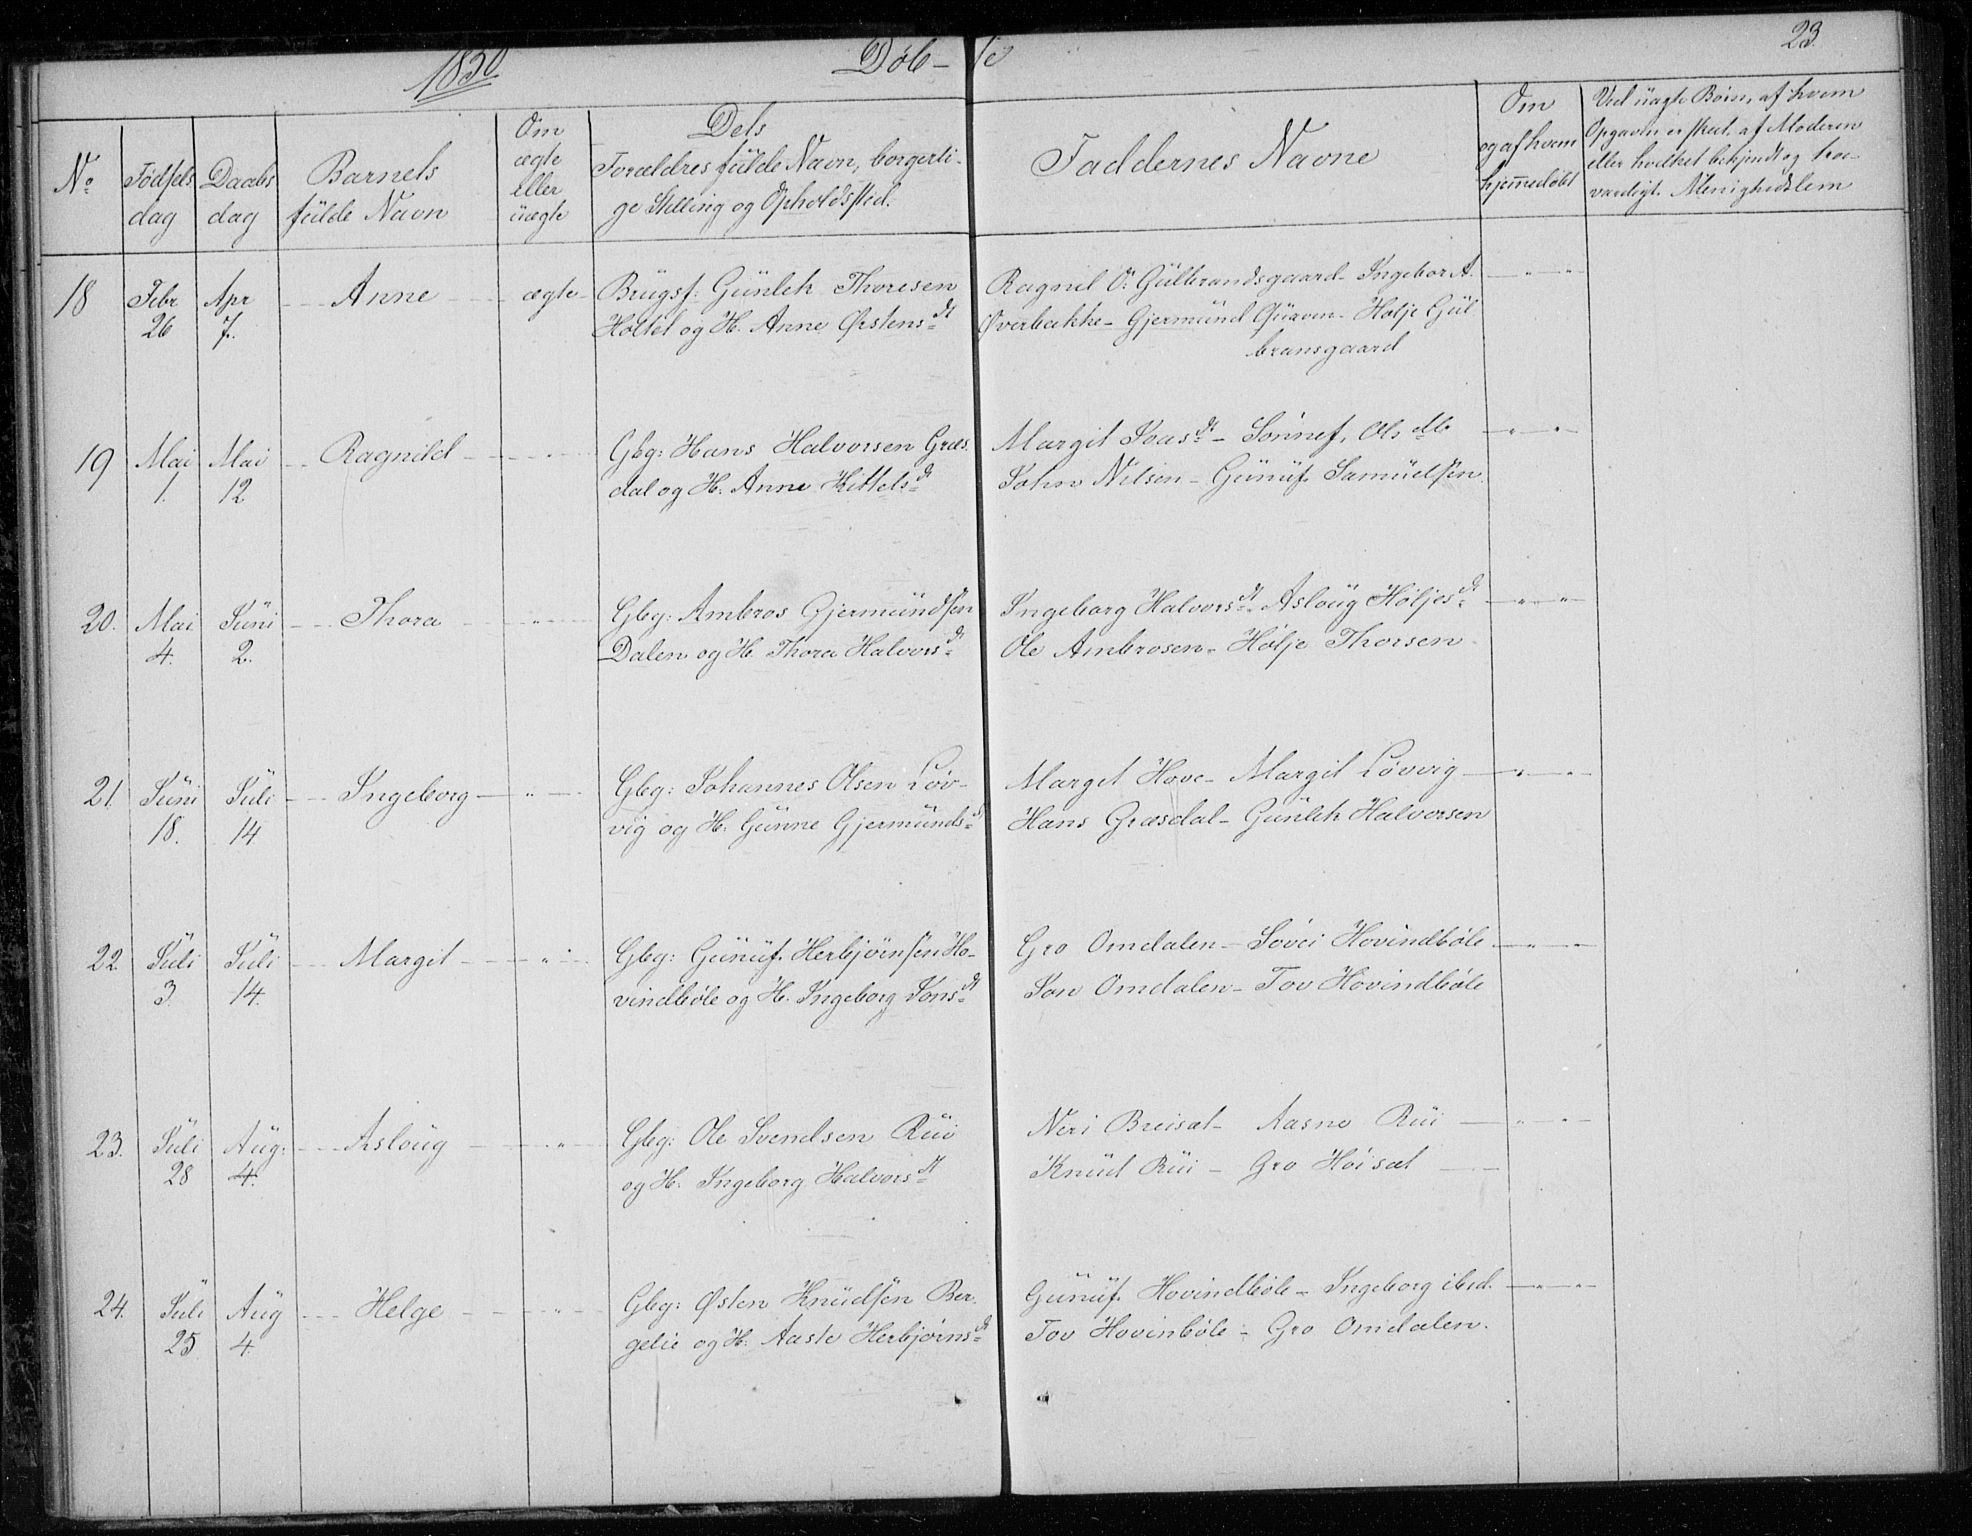 1850 Döb- te 23.
No Födsels dag Daabs dag Barnets fulde Navn Om ægte eller uægte Dels Forældres fulde Navn, borgerli- ge Stilling og Opholdssted. Faddernes Navne Om og af hvem hjemmedöbt Ved uægte Börn, af hvem Opgaven er skeet, af Moderen eller hvilket bekjendt og troe- værdigt Menighedslem
18 Febr Apr Anne ægte Brugsf: Gunlek Thoresen Ragnil O. Gulbrandsgaard- Ingebor A. - " - "
26 7. Holtet og H. Anne Østensdt Øverbække- Gjermund - Hölje Gul
bransgaard
19 Mai Mai Ragnild - " - Gbg: Hans Halvorsen Græs- Margit - Sönnef, Ols - " - "
1. 12 dal og H. Anne Kittelsdt John Nilsen - Gunuf. Samuelsen.
20. Mai Juni Thora - " - Gbg: Ambros Gjermundsen Ingeborg Halvorsdt - Asloug Höljesdt - " - "
4. 2. Dalen og H. Thora Halvorsdt Ole Ambrosen- Hölje Thorsen.
21. Juni Juli Ingeborg - " - Gbg: Johannes Olsen Löv- Margit Hove- Margit Lövvig - " - "
18. 14 vig og H. Gunne Gjermundsdt Hans Græsdal- Gunlek Halvorsen
22 Juli Juli Margit - " - Gbg: Gunuf. Herbjörnsen Ho- Gro Omdalen- Sövei Hovindböle - " - "
3. 14. vindböle og H. Ingeborg Jonsdt Jon Omdalen- Tov Hovindböle
23. Juli Aug: Asloug - " - Gbg: Ole Svendsen Rui Neri Breisæt- Aasne Rui - " - "
28 4. og H. Ingeborg Halvorsdt Knud Rui - Gro Höisæt
24. Juli Aug Helge - " - Gbg: Østen Knudsen Ber- Gunuf. Hovindböle - Ingeborg ibid. - " - "
25 4. gelie og H. Aaste Herbjörnsdt Tov Hovinböle - Gro Omdalen.